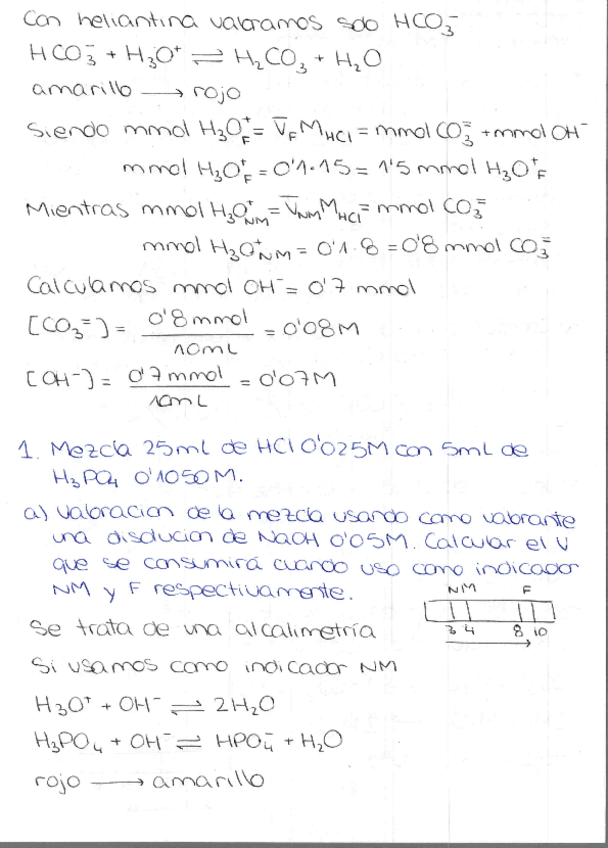 Con heliantina valoramos solo HCO₃⁻
HCO₃⁻ + H₃O⁺ ⇌ H₂CO₃ + H₂O
amarillo ⟶ rojo
Siendo mmol H₃O⁺F = V̅F MHCl = mmol CO₃⁼ + mmol OH⁻
mmol H₃O⁺F = 0'1·15 = 1'5 mmol H₃O⁺F
Mientras mmol H₃O⁺NM = V̅NM MHCl = mmol CO₃⁼
mmol H₃O⁺NM = 0'1·8 = 0'8 mmol CO₃⁼
Calculamos mmol OH⁻ = 0'7 mmol
[CO₃⁼] = 0'8 mmol / 10mL = 0'08M
[OH⁻] = 0'7 mmol / 10mL = 0'07M
1. Mezcla 25mL de HCl 0'025M con 5mL de
H₃PO₄ 0'1050M.
a) Valoracion de la mezcla usando como valorante
una disolucion de NaOH 0'05M. Calcular el V
que se consumirá cuando uso como indicador
NM y F respectivamente.
NM F
3 4 8 10
Se trata de una alcalimetría
Si usamos como indicador NM
H₃O⁺ + OH⁻ ⇌ 2H₂O
H₃PO₄ + OH⁻ ⇌ HPO₄⁼ + H₂O
rojo ⟶ amarillo